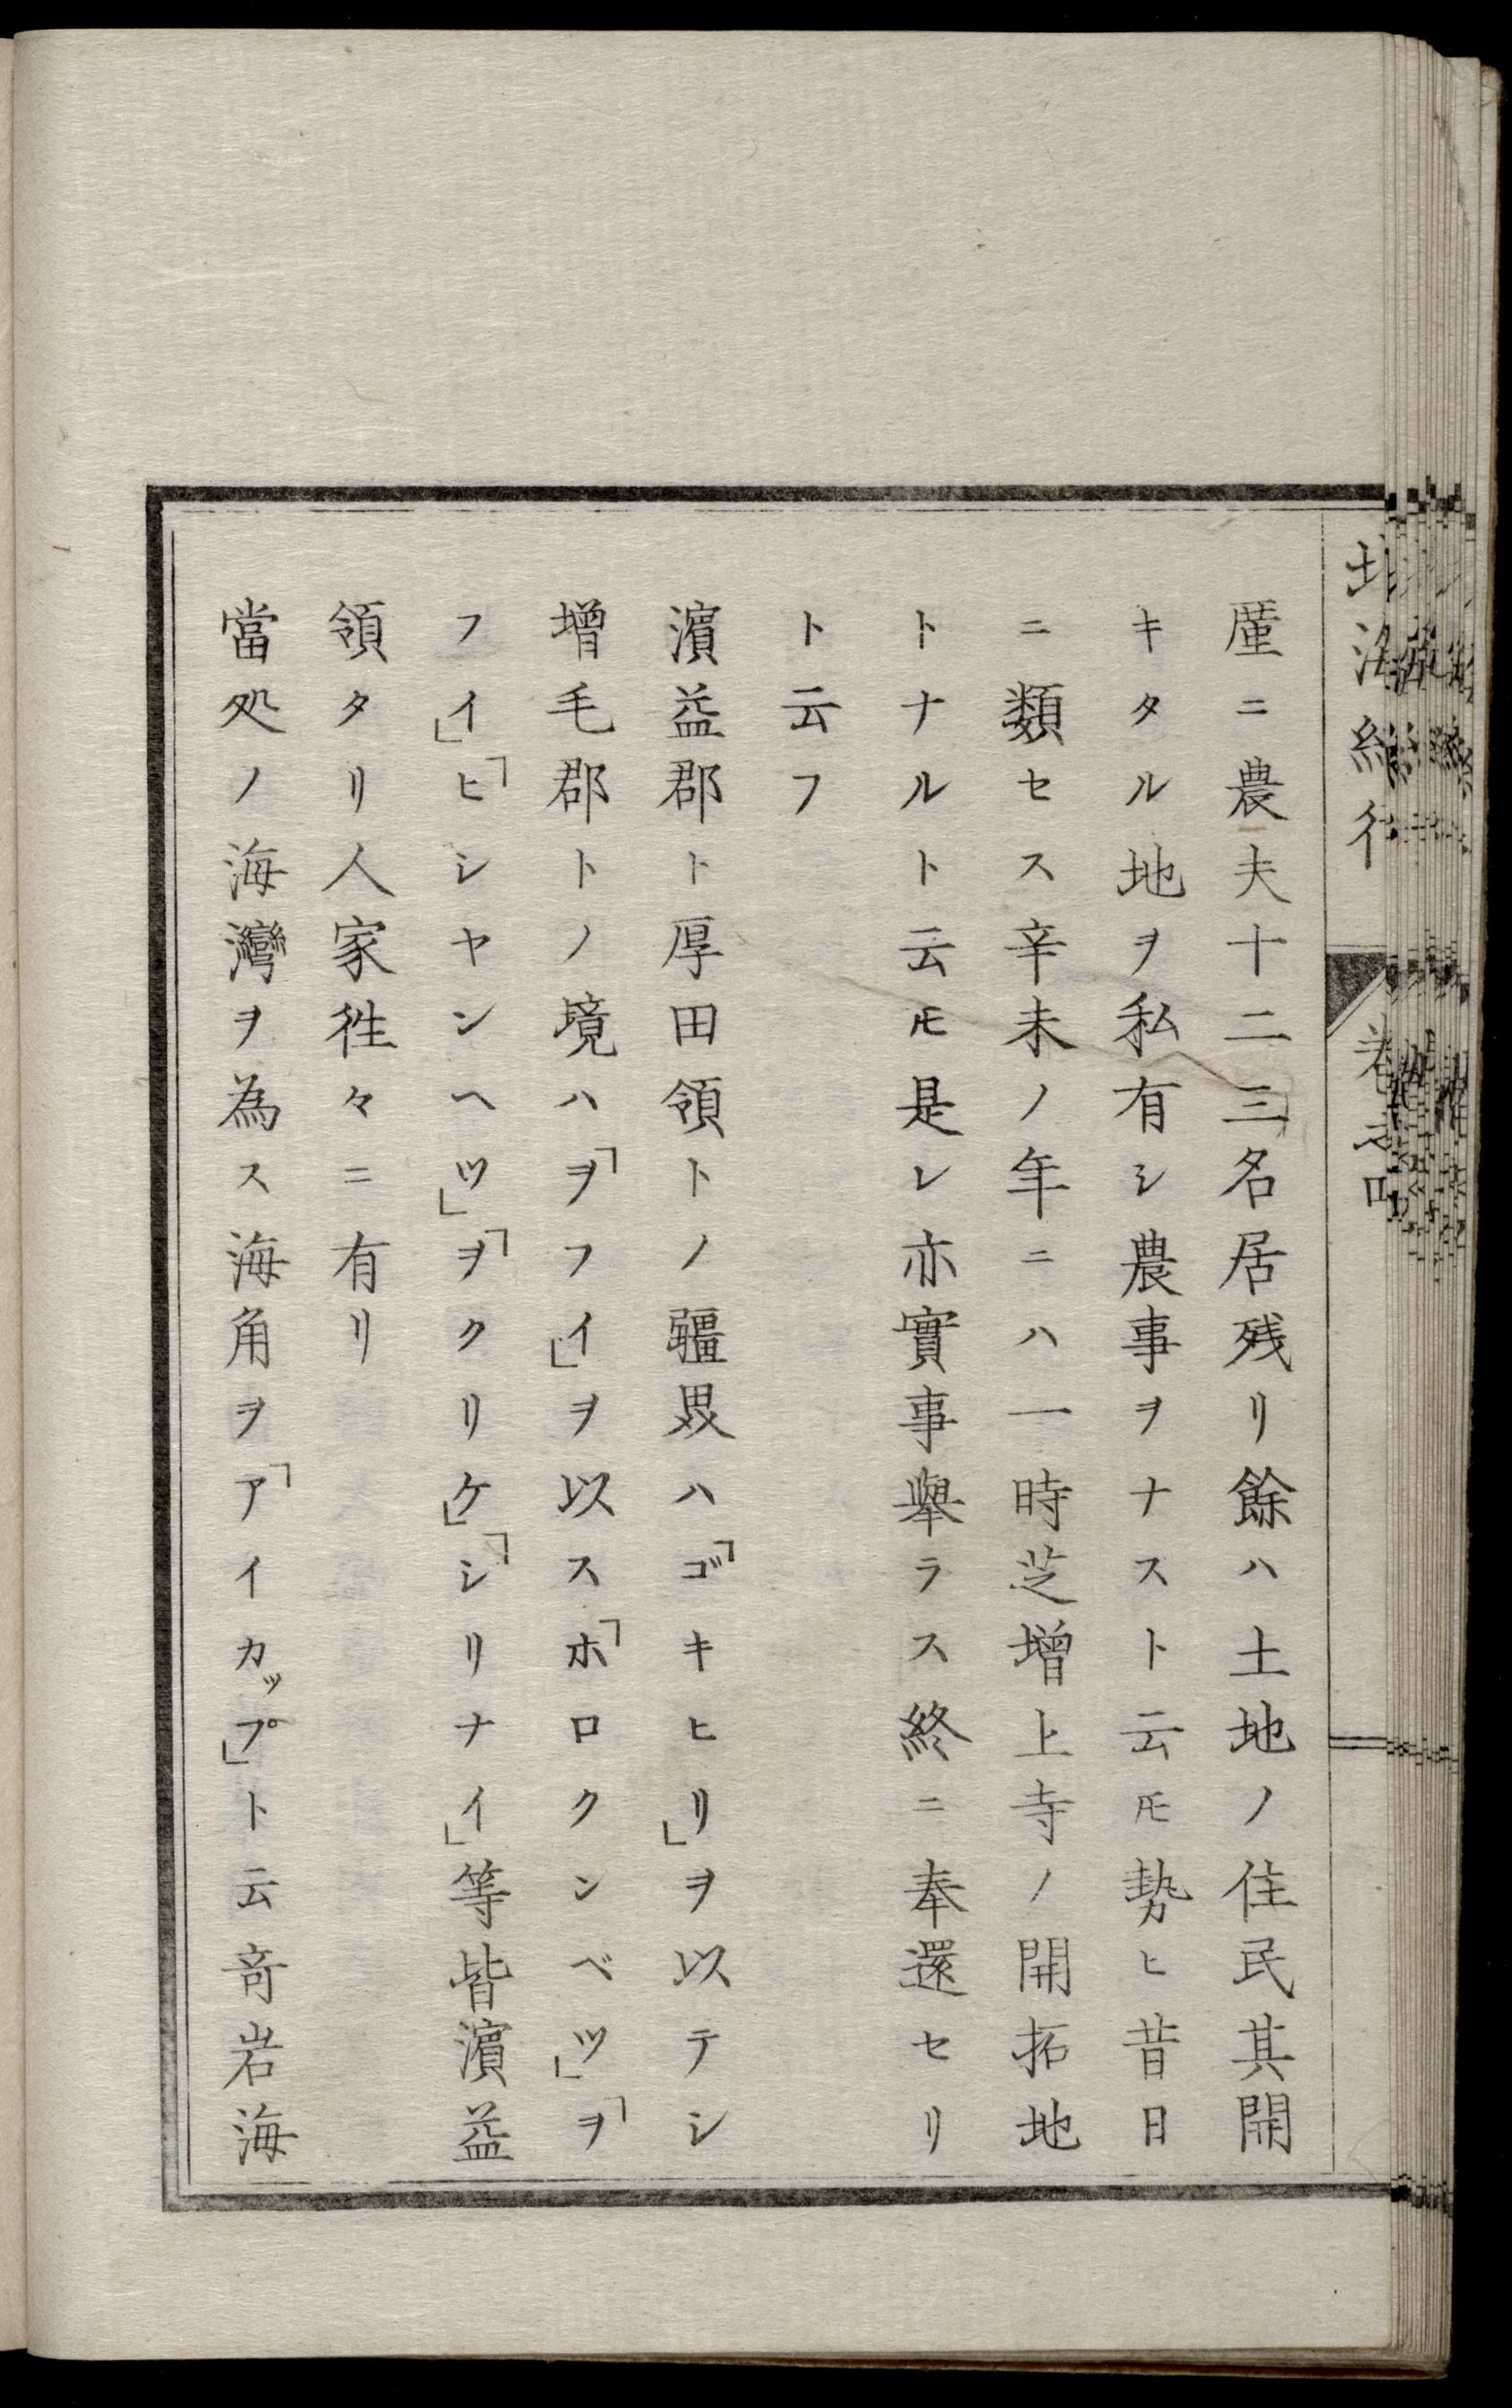 廑ニ農夫十二三名居残リ餘ハ土地ノ住民其開
キタル地ヲ私有シ農事ヲナスト云𪜈勢ヒ昔日
ニ類セス辛未ノ年ニハ一時芝增上寺ノ開拓地
トナルト云𪜈是レ亦實事舉ラス終ニ奉還セリ
ト云フ
濵益郡ト厚田領トノ疆界ハ「ゴキヒリ」ヲ以テシ
增毛郡トノ境ハ「ヲフイ」ヲ以ス「ホロクンベツ」「ヲ
フイ」「ヒシヤンヘツ」「ヲクリケ」「シリナイ」等皆濵益
領タリ人家徃々ニ有リ
當処ノ海灣ヲ為ス海角ヲ「アイカップ」ト云竒岩海